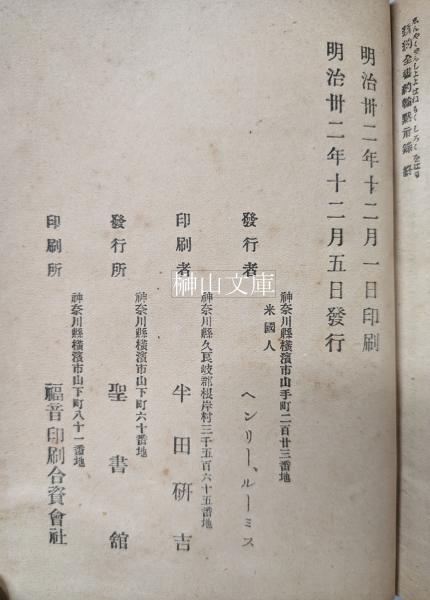 新約全書約翰黙示録 終
明治卅二年十二月一日印刷
明治卅二年十二月五日發行
神奈川縣橫濱市山手町二百廿三番地
發行者 米國人 ヘンリー、ルーミス
神奈川縣久良岐郡根岸村三千五百六十五番地
印刷者 半田硏吉
神奈川縣橫濱市山下町六十番地
發行所 聖書館
神奈川縣橫濱市山下町八十一番地
印刷所 福音印刷合資會社
榊山文庫